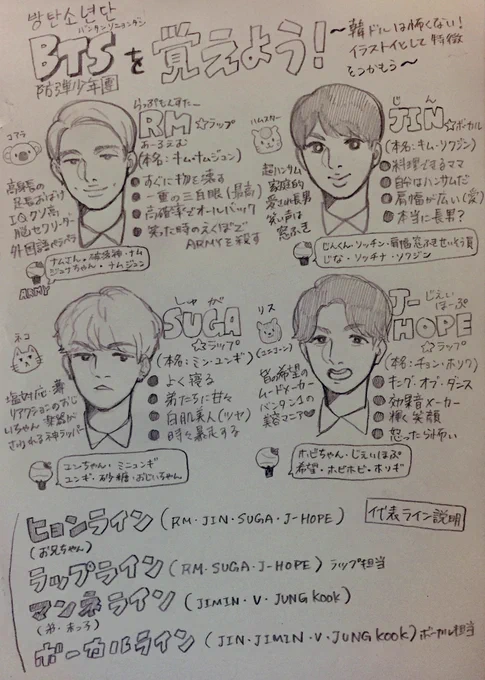 방탄소년단
バンタンソニョンダン
BTSを覚えよう!
防弾少年團
〜韓ドルは怖くない!
イラストイとして特徴
をつかもう〜
らっぷもんすたー
RM ☆ラップ
あーるえむ
(本名:キム・ナムジュン)
コアラ
高身長の
足長おばけ
IQクソ高
脳セクリーダー
外国語ペラペラ
すぐに物を壊る
一重の三白眼(最高)
高確率でオールバック
笑った時のえくぼで
ARMYを殺す
ナムさん・破壊神・ナム
ジュナちゃん・ナムジュン
ARMY
じん
JIN ☆ボーカル
(本名:キム・ソクジン)
ハムスター
超ハンサム
家庭的
愛され長男
笑い声は
窓ふき
料理できるママ
自称ハンサムだ
肩幅が広い(愛)
本当に長男?
じんくん・ソッチン・肩幅
じな・ソッチナ・ソクジン
しゅが
SUGA
☆ラップ
(本名:ミン・ユンギ)
ネコ
塩対応・薄
リアクションのおじ
いちゃん
神ラッパー
よく寝る
弟たちに甘々
白肌美人(ツヤ)
時々暴走する
ユンちゃん・ミニュンギ
ユンギ・砂糖・おじいちゃん
J-HOPE
じぇい
ほーぷ
☆ラップ
(本名:チョン・ホソク)
リス
皆の希望の
ムードメーカー
バンタン1の
美容マニア♥
キング・オブ・ダンス
効果音メーカー
輝く笑顔
怒ったら怖い
ホビちゃん・じぇいほぷ
希望・ホビホビ・ホソギ
代表ライン説明
ヒョンライン(RM・JIN・SUGA・J-HOPE)
(お兄ちゃん)
ラップライン(RM・SUGA・J-HOPE)ラップ担当
マンネライン(JIMIN・V・JUNGKOOK)
(弟・末っ子)
ボーカルライン(JIN・JIMIN・V・JUNGKOOK)ボーカル担当